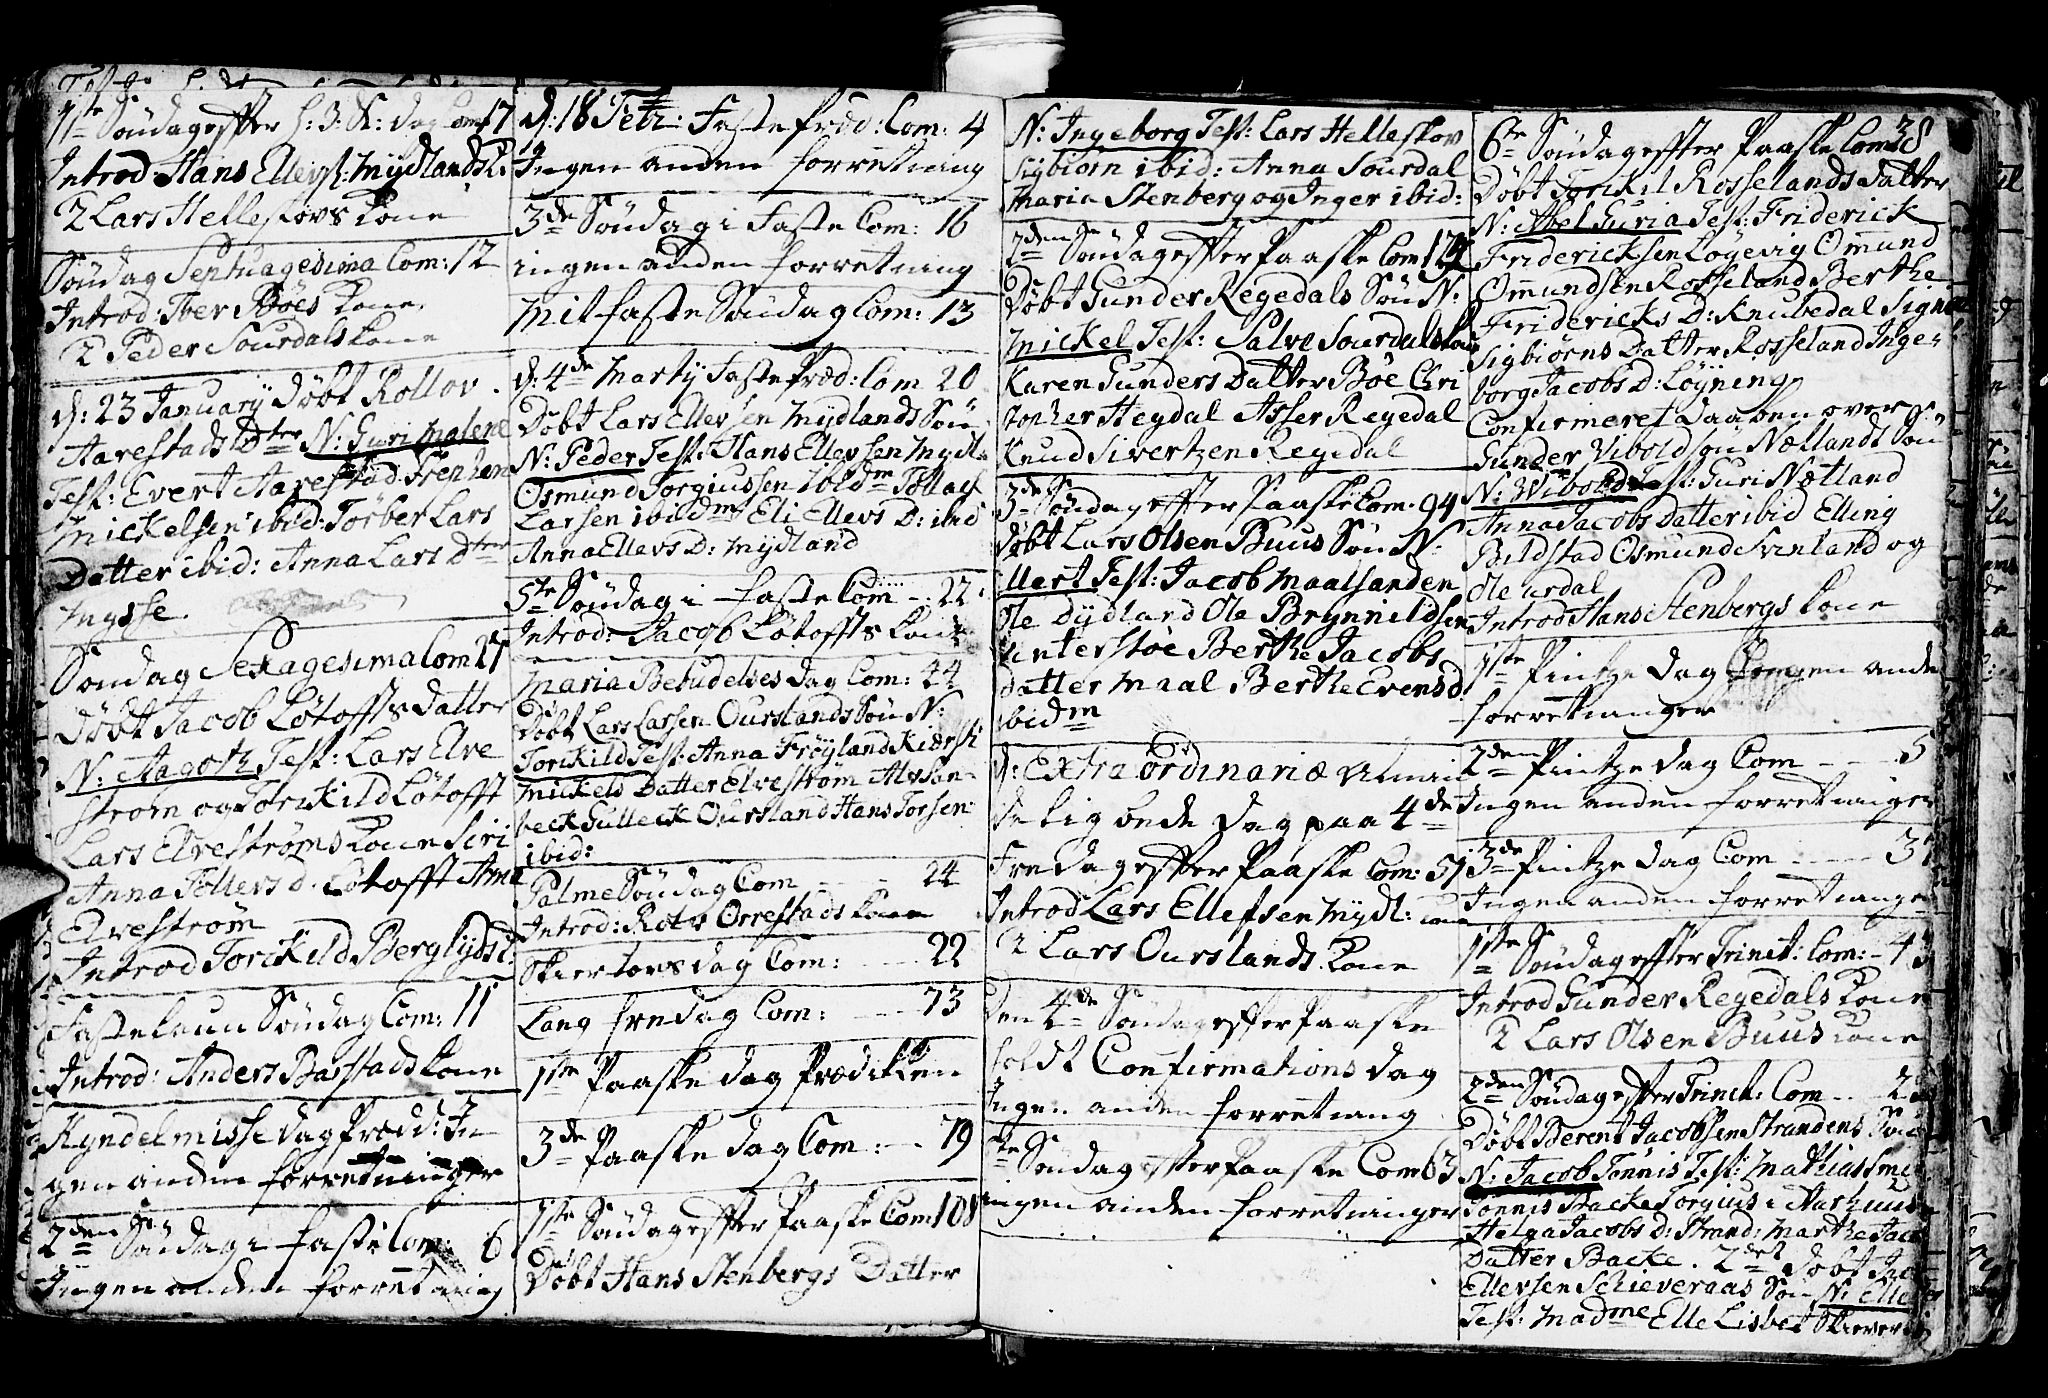 1ste Søndag effter H: 3: K: dag Com 17
Introd Hans Ellevs: Mydlands k:
2 Lars Helleskovs Kone
Søndag Septuagesima Com: 12
Introd: Iver Bøes Kone
2 Peder Sourdals kone
d: 23 January Døbt Rollov
Aarestads Dtter N: Guri Malene
Test: Evert Aarestad Trephen
Mickelsen ibid: Torber Lars
Datter ibid: Anna Lars Dtter
Mysse.
Søndag Sexagesima Com 21
Døbt Jacob Løtoffts Datter
N: Aagoth Test: Lars Elve
strøm og Torckild Løtofft
Lars Elvestrøms kone Siri
Anna Tollevs d. Løtofft Anna
Elvestrøm
Introd Torckild Berglyds k:
Fastelaun Søndag Com: 11
Introd: Anders Barstads kone
Kyndelmisse dag Præd: In
gen anden forretninger
2den Søndag i Faste Com: 6
Ingen anden forretning
d: 18 Febr: Faste Præd: Com: 4
Ingen anden forretning
3de Søndag i Faste Com: 16
ingen anden forretning
Mitfaste Søndag Com: 13
d: 4de Marty Faste Præd: Com 20
Døbt Lars Ellevsen Mydlands Søn
N: Peder Test: Hans Ellevsen Mydl:
Osmund Torgiussen ibidm Tollack
Larsen ibidm Eli Ellevs D: ibid
Anna Ellevs D: Mydland
5te Søndag i Faste Com - - 22
Introd: Jacob Løtoffts kone
Maria Bebudelses dag Com: 24
Døbt Lars Larsen Ourstands Søn N:
Torckild Test: Anna Frøyland Kiersti
Mickels Datter Elvestrøm Alv San-
beck Gulleck Ourstand Hans Torsen
ibid:
Palme Søndag Com - - - 24
Introd: Rolv Orrestads kone
Skiertors dag Com: - - - 22
Lang fredag Com: - - - 73
1ste Paaske dag Prædicken
3de Paaske dag Com: - - 79
1ste Søndag effter Paaske Com 108
Døbt Hans Stenbergs Datter
N: Ingeborg Test: Lars Helleskov
Sigbiørn ibid: Anna Sourdal
Maria Stenberg og Inger ibid:
2den Søndag effter Paaske Com 124
Døbt Gunder Regedals Søn N:
Mickel Test: Salve Sourdals kone
Karen Gunders Datter Bøe Chri
stopher Heydal Asser Regedal
Knud Sivertzen Regedal
3de Søndag effter Paaske Com. 94
Døbt Lars Olsen Buus Søn N:
Ellert Test: Jacob Maalsanden
Ole Dydland Ole Brynnildsen
Kinterstøe Berthe Jacobs
datter Maal Berthe Evens d
ibidm
d: Extra ordinariæ Almin
delig bede dag paa 4de
Fredag effter Paaske Com: 51
Introd Lars Ellefsen Mydl: kone
2 Lars Ourstands kone
Den 4de Søndag effter Paaske
holdt Confirmations dag
Ingen anden forretning
5te Søndag effter Paaske Com 63
ingen anden forretninger
38
6te Søndag effter Paaske Com
Døbt Torckil Rosselands Datter
N: Abel Guria Test: Friderick
Fridericksen Løgevig Omund
Omundsen Rosseland Berthe
Fridericks D: Knubedal Signe
Sigbiørns Datter Rosseland Inge-
borg Jacobs D: Løyning
Confirmeret Daaben over
Gunder Vibolds øn Nætlands Søn
N: Wibold Test: Guri Nætland
Anna Jacobs Datter ibid Elling
Bildstad Osmund Svinland og
Ole urdal
Introd Hans Stenbergs kone
1ste Pintze dag Ingen anden
forretninger
2den Pintze dag Com - - - 5
Ingen anden forretninger
3de Pintze dag Com - - - 3
Ingen anden forretninger
1ste Søndag effter Trinit: Com: - 43
Introd Gunder Regedals kone
2 Lars Olsen Buus kone
2den Søndag effter Trinit: Com - - 2
Døbt Berent Jacobsen Strandens Søn
N: Jacob Tønnis Test: Mathias
Tønnis Backe Torgius Aarhuus
Helga Jacobs d: Strand: Marthe Jac
Datter Backe. 2det Døbt
Ellevsen Schieveraas Søn N: Elle
Test: Madme Elle Lisbet